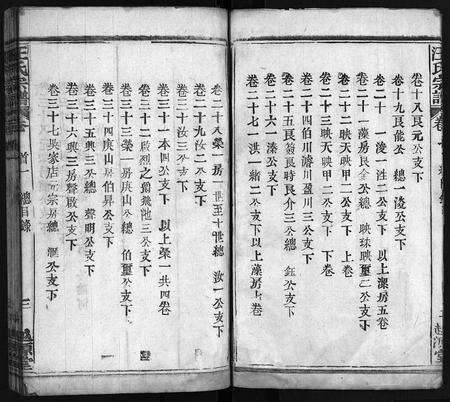 汪氏宗譜
卷十八艮元公支下
卷十九艮能公 總一浚公支下
卷二十 一浚一注二公支下 以上濮房五卷
卷二十一藻房艮金公總 映珠映璽二公支下
卷二十二映天映甲二公支下 上卷
卷二十三映天映甲二公支下 下卷
卷二十四伯川濬川盈川三公支下
卷二十五艮 艮時艮介三公總 鈺公支下
卷二十六一溱公支下
卷二十七一洪一緒二公支下以上藻房 卷
卷二十八榮一房一世至十世總 汝一公支下
卷二十九汝二公支下
卷三十汝三公支下
卷三十一本四公支下 以上榮一共四卷
卷三十二啟烈之 公支下
卷三十三榮一房庾山公總 伯璽公支下
卷三十四庾山房伯昇公支下
卷三十五興三公總 聲明公支下
卷三十六興三房釋啟公支下
卷三十七吳家店 宗房總 公支下
汪氏宗譜
卷首一 總目錄
三
越國堂